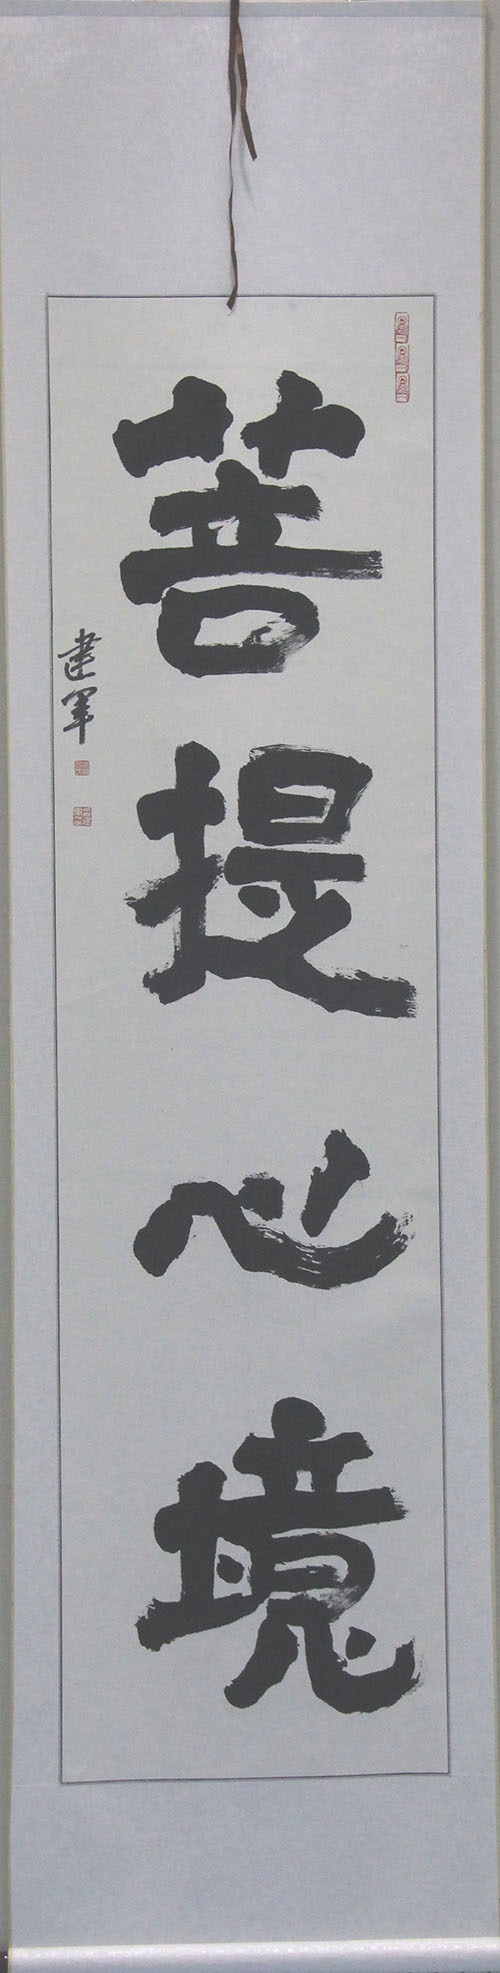 菩提心境
建军